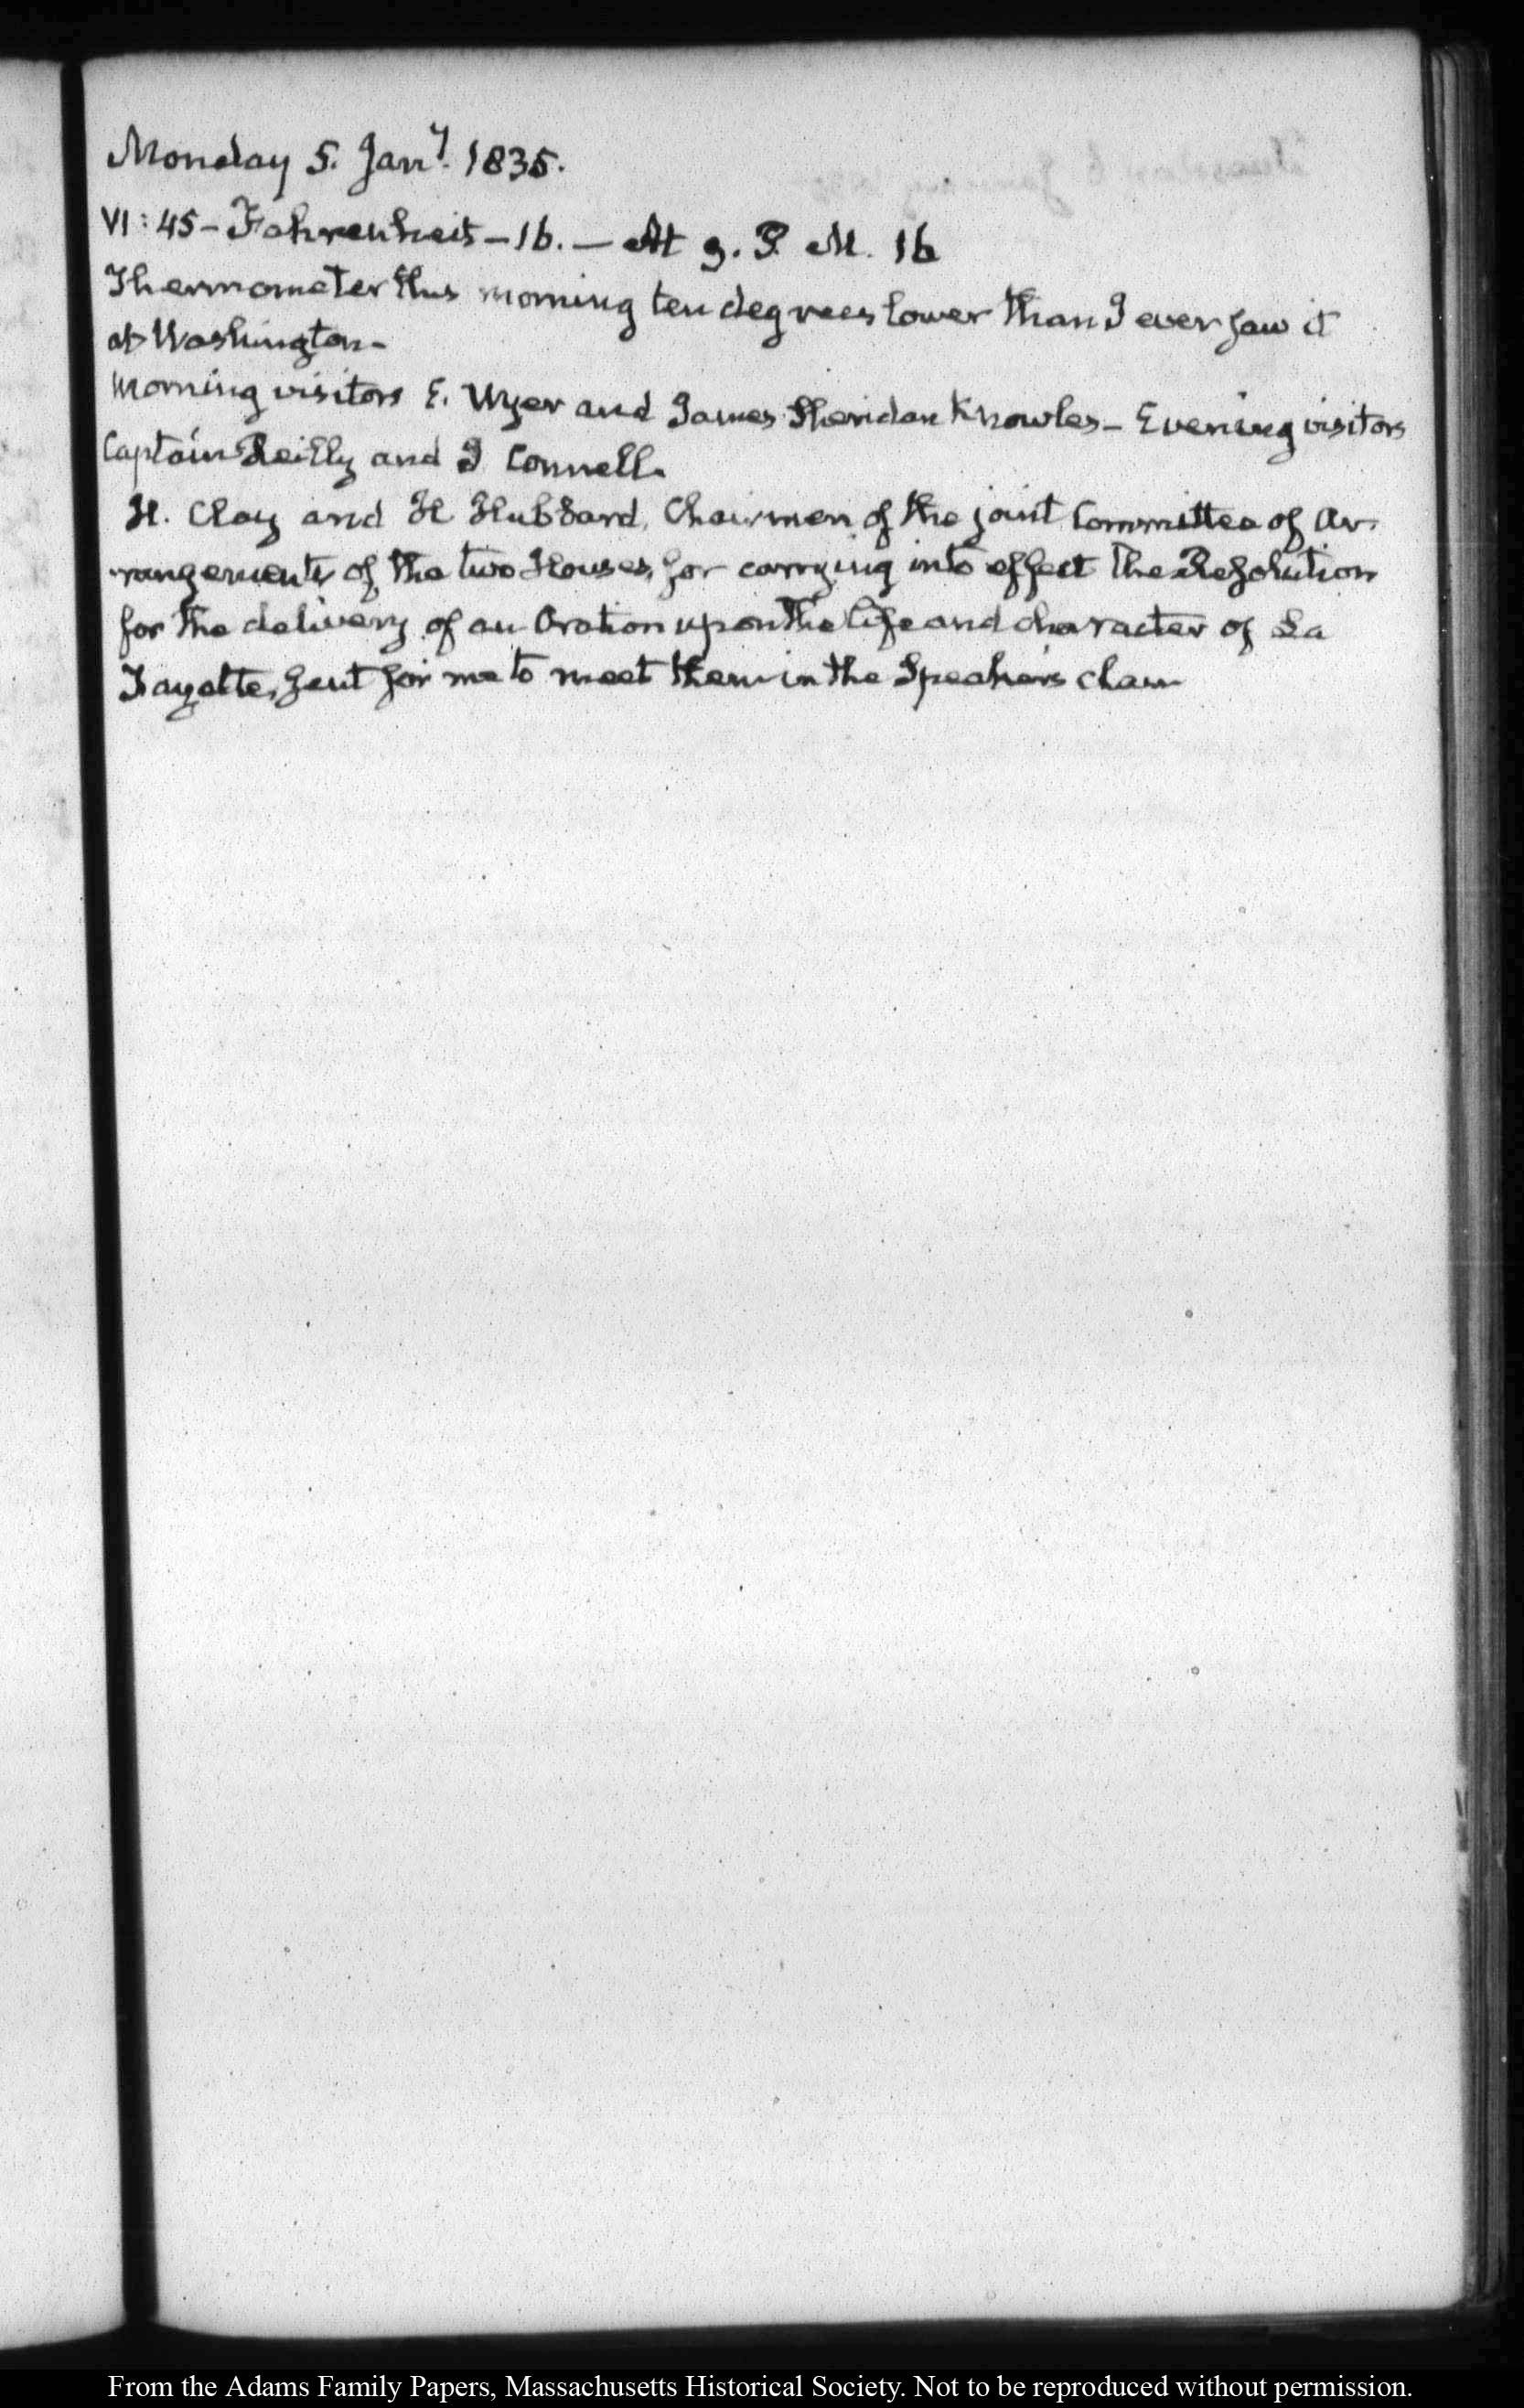 Monday 5. Jany. 1835.
VI: 45 - Fahrenheit - 16. — At 9. P. M. 16
Thermometer this morning ten degrees lower than I ever saw it
at Washington -
Morning visitors E. Wyer and James Sheridan Knowles - Evening visitors
Captain Reilly and J Connell.
H. Clay and H Hubbard, Chairmen of the joint Committee of Ar-
rangements of the two Houses, for carrying into effect the Resolution
for the delivery of an Oration upon the life and character of La
Fayette, sent for me to meet them in the Speaker's cham
From the Adams Family Papers, Massachusetts Historical Society. Not to be reproduced without permission.